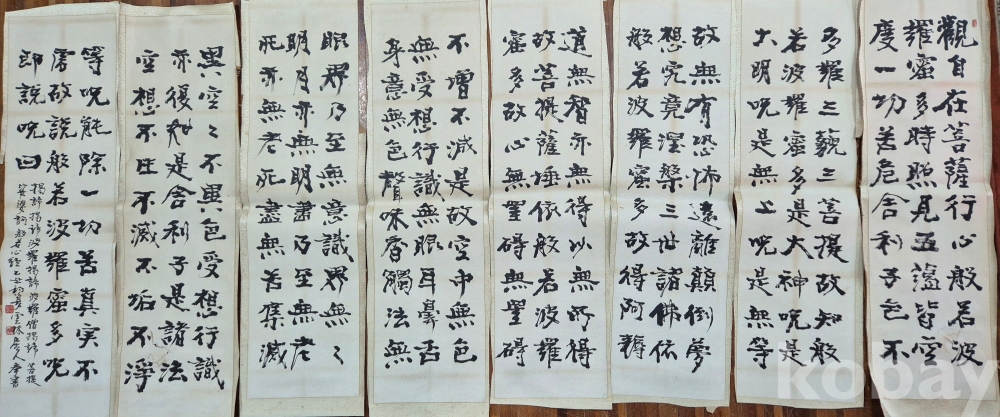 觀自在菩薩行心般若波
羅蜜多時照見五蘊皆空
度一切苦厄舍利子色不
多羅三藐三菩提故知般
若波羅蜜多是大神呪是
大明呪是無上呪是無等
故無有恐怖遠離顛倒夢
想究竟涅槃三世諸佛依
般若波羅蜜多故得阿耨
道無智亦無得以無所得
故菩提薩埵依般若波羅
蜜多故心無罣碍無罣碍
不增不減是故空中無色
無受想行識無眼耳鼻舌
身意無色聲味香觸法無
眼界乃至無意識界無々
明亦無明盡乃至無老
死亦無老死盡無苦集滅
異空々不異色受想行識
亦復如是舍利子是諸法
空想不生不滅不垢不淨
等呪能除一切苦真実不
虛故說般若波羅蜜多呪
即說呪曰
揭諦揭諦波羅揭諦波羅僧揭諦菩提
娑婆訶般若心経乙丑
kobay